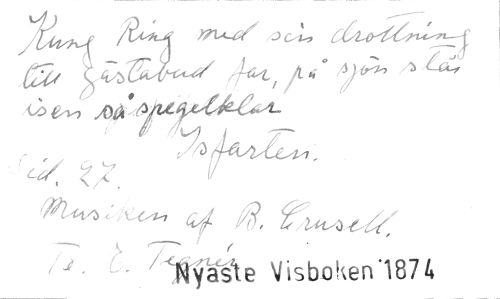 Kung Ring med sin drottning
till gästabud far, på sjön står
isen så spegelklar
Isfarten.
Sid. 27.
Musiken af B. Crusell.
Te. E. Tegnér
Nyaste Visboken 1874